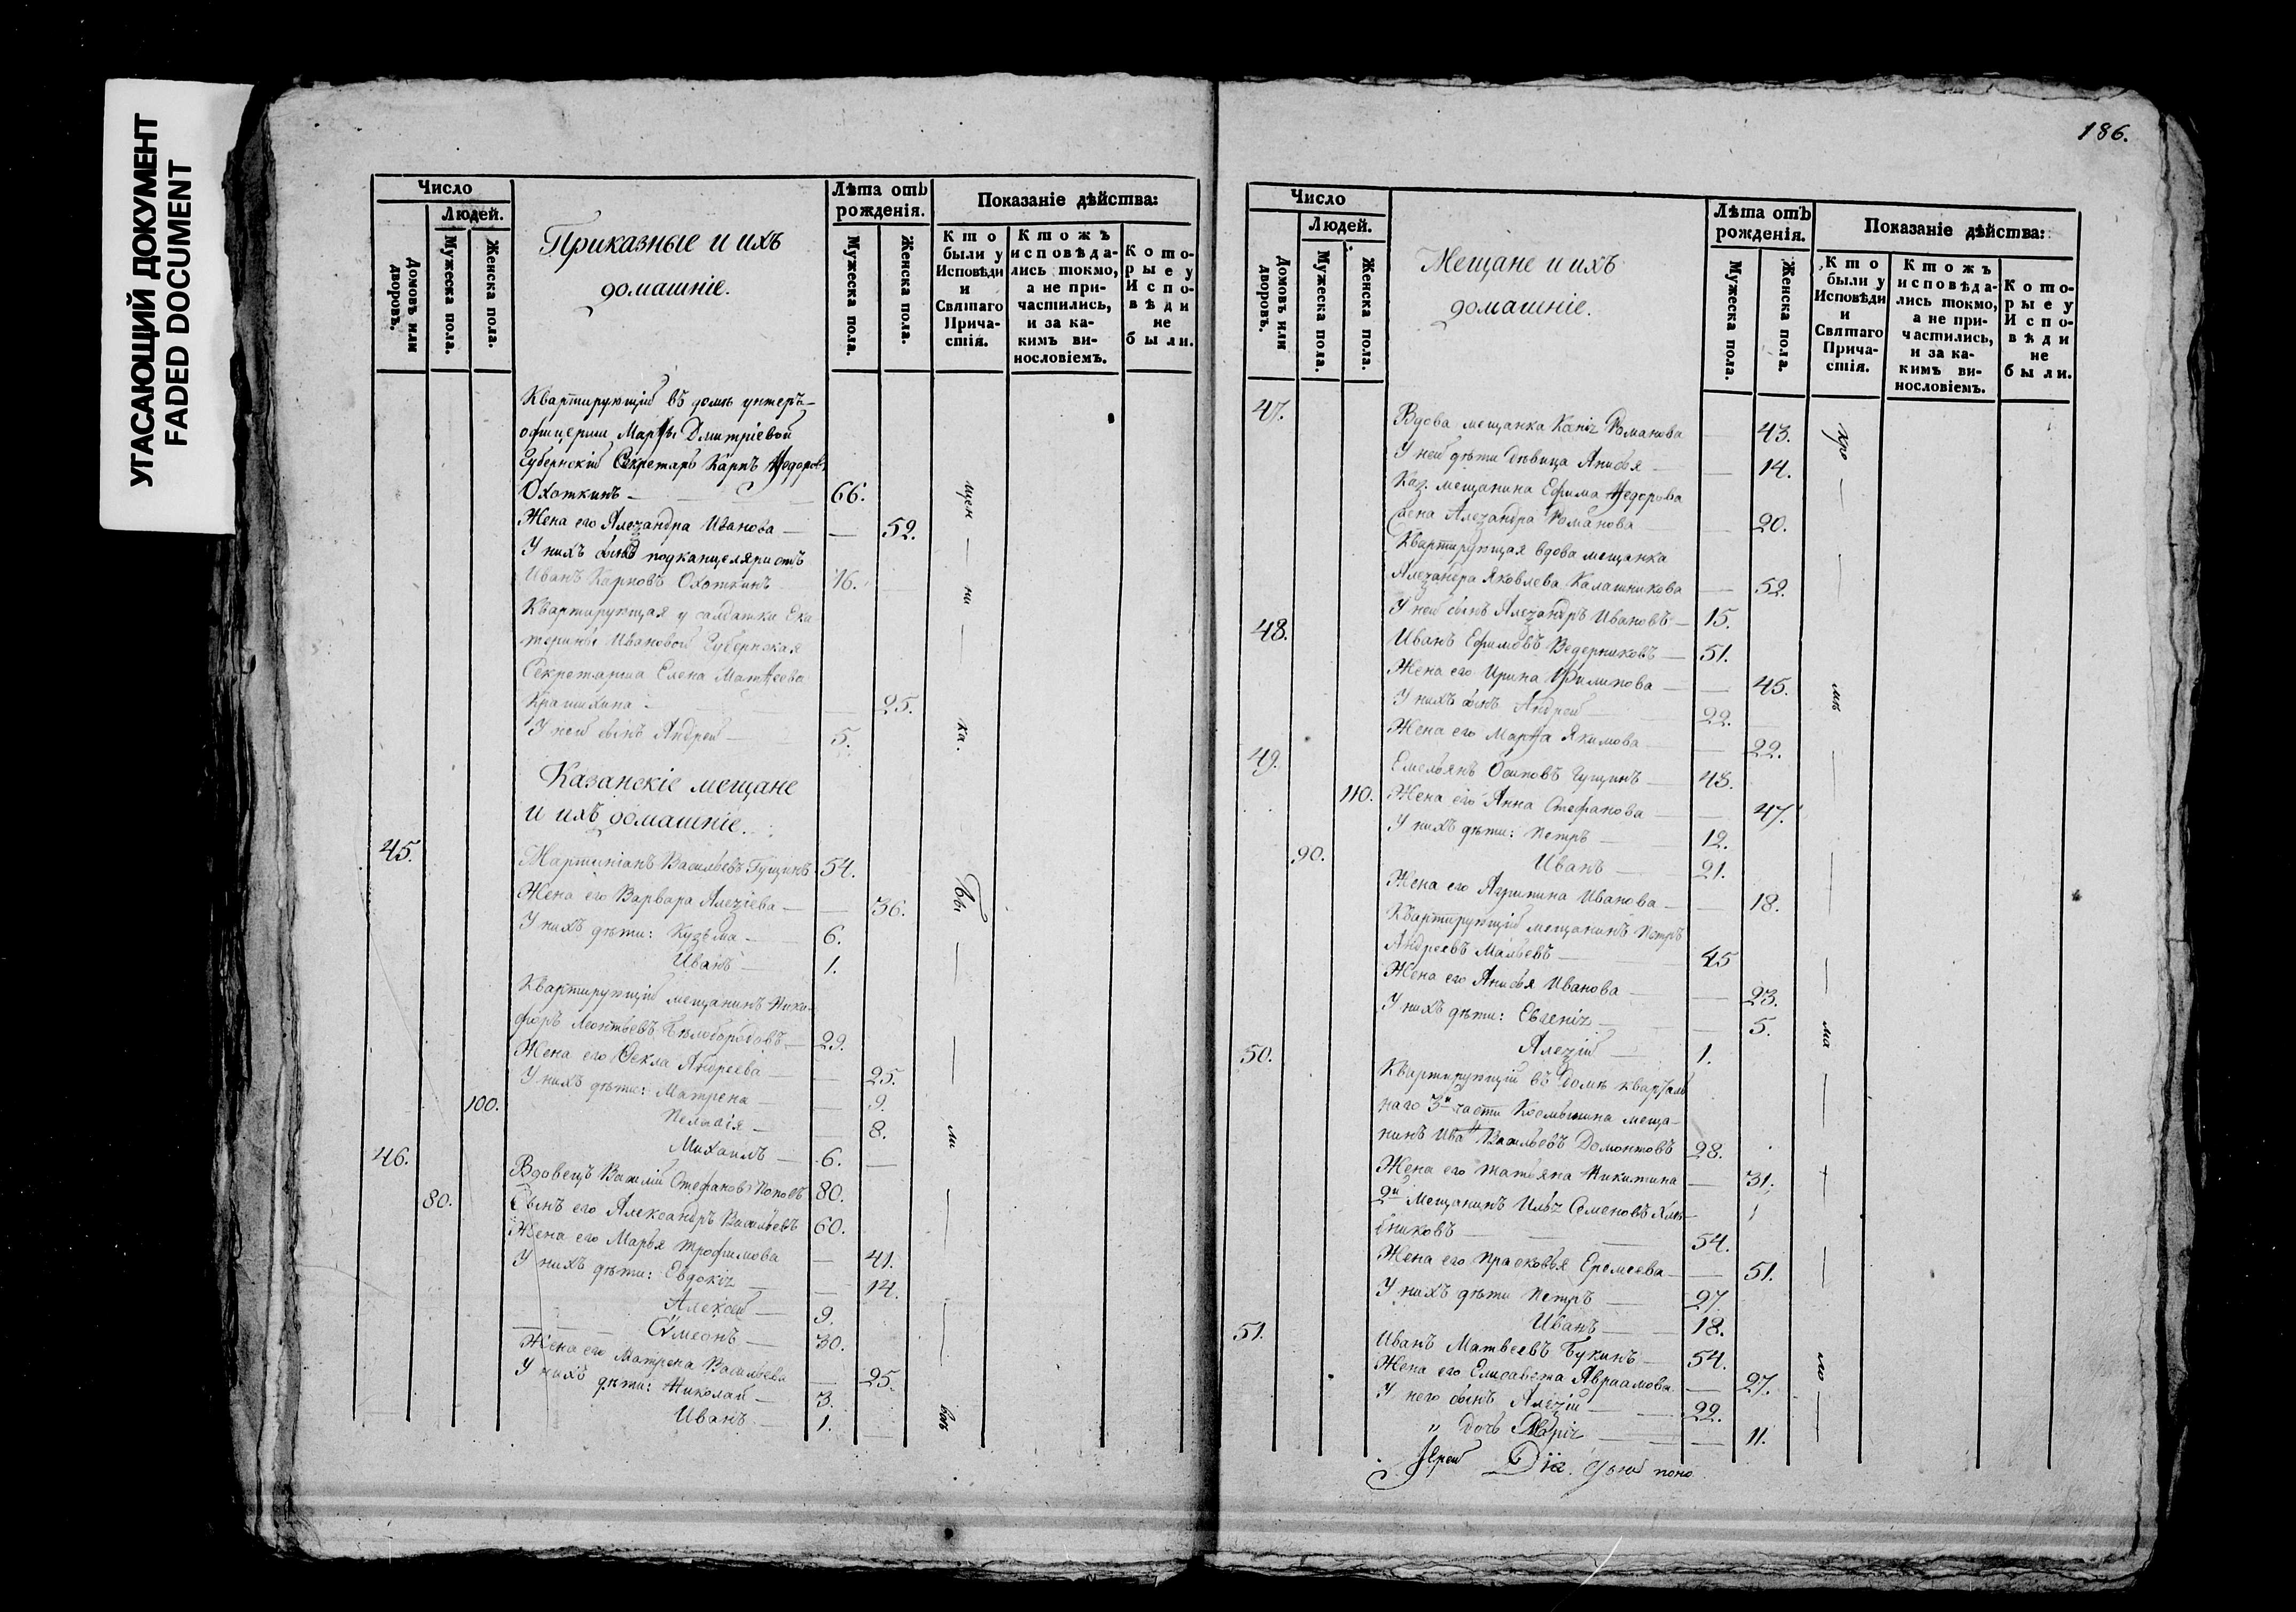 УГАСАЮЩИЙ ДОКУМЕНТ
FADED DOCUMENT
Число
Людей.
Домовъ или дворовъ.
Мужеска пола.
Женска пола.
Приказные и ихъ
домашніе.
Лѣта отъ
рожденія.
Мужеска пола.
Женска пола.
Показаніе дѣйства:
Кто
были у
Исповѣди
и
Святаго
Прича-
стія.
Ктожъ
исповѣда-
лись токмо,
а не при-
частились,
и за ка-
кимъ ви-
нословіемъ.
Кото-
рые у
Испо-
вѣди
не
были.
Квартирующій въ домѣ унтеръ-
офицерши Марѳы Дмитріевой
Губернскій Секретарь Карпъ Ѳедоровъ
Охоткинъ — 66.
Жена его Алеѯандра Иванова — — 52.
У нихъ сынъ подканцеляристъ
Иванъ Карповъ Охоткинъ 16.
Квартирующая у салдатки Ека
терины Ивановой Губернская
Секретарша Елена Матѳеева
Крашихина — 25.
У ней сынъ Андрей — 5.
Казанскіе мещане
и ихъ домашніе.
45. Мартиніанъ Васильевъ Гущинъ 54.
Жена его Варвара Алеѯіева — — 36.
У нихъ дѣти: Кузьма — 6.
Иванъ — 1.
Квартирующій мещанинъ Ники-
форъ Леонтьевъ Бѣлобородовъ — 29.
Жена его Ѳекла Андреева — — 25.
У нихъ дѣти: Матрена — — 9.
100. Пелагія — — 8.
Михаилъ — 6. —
46. Вдовецъ Василій Стефановъ Поповъ 80.
80. Сынъ его Александръ Васильевъ 60.
Жена его Марья Трофимова — 41.
У нихъ дѣти: Евдокіѧ — — 14.
Алексѣй — 9.
Сѵмеонъ — 30.
Жена его Матрена Васильева — 25.
У нихъ дѣти: Николай — 3.
Иванъ — 1. —
186.
Число
Людей.
Домовъ или дворовъ.
Мужеска пола.
Женска пола.
Мещане и ихъ
домашніе.
Лѣта отъ
рожденія.
Мужеска пола.
Женска пола.
Показаніе дѣйства:
Кто
были у
Исповѣди
и
Святаго
Прича-
стія.
Ктожъ
исповѣда-
лись токмо,
а не при-
частились,
и за ка-
кимъ ви-
нословіемъ.
Кото-
рые у
Испо-
вѣди
не
были.
47. Вдова мещанка Ксеніѧ Романова — 43.
У ней дѣти дѣвица Анисья — — 14.
Каз. мещанина Ефима Ѳедорова
жена Алеѯандра Романова — — 20.
Квартирующая вдова мещанка
Алеѯандра Яковлева Калашникова — 52.
У ней сынъ Алеѯандръ Ивановъ — 15.
48. Иванъ Ефимовъ Ведерниковъ — 51.
Жена его Ирина Филипова — — 45.
У нихъ сынъ Андрей — 22. —
Жена его Марѳа Якимова — — 22.
49. Емельянъ Осиповъ Гущинъ — 48.
110. Жена его Анна Стефанова — — 47.
У нихъ дѣти: Петръ — 12.
90. Иванъ — 21.
Жена его Агрипина Иванова — — 18.
Квартирующій мещанинъ Петръ
Андреевъ Мальевъ — 45
Жена его Анисья Иванова — — 23.
У нихъ дѣти: Евгеніѧ — — 5.
Алеѯій — 1.
50. Квартирующій въ домѣ квартал
наго 3й части Косьмина меща-
нинъ Ива Васильевъ Домонтовъ 28.
Жена его Татьяна Никитина — 31.
2й Мещанинъ Ильѧ Семеновъ Хлѣ-
бниковъ — 54.
Жена его Прасковья Еремеева — — 51.
У нихъ дѣти Петръ — 27.
Иванъ — 18.
51. Иванъ Матвеевъ Букинъ — 54.
Жена его Елисавета Авраамова — 27.
У него сынъ Алеѯій — 22.
„ дочь Маріѧ — — 11.
Іерей